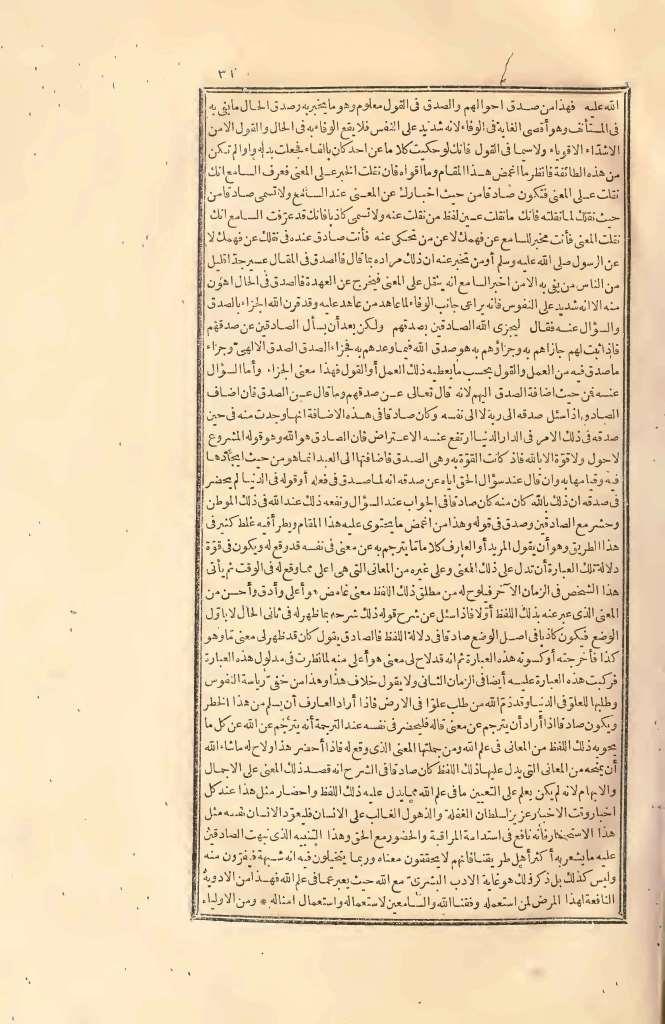 ٣١
الله عليه فهذا من صدق احوالهم والصدق فى القول معلوم وهو ما يخبر به وصدق الحال ما يفى به
فى المستأنف وهو أقصى الغاية فى الوفاء لانه شديد على النفس فلا يقع الوفاء به فى الحال والقول الا من
الاشداء الاقوياء ولاسيما فى القول فانك لو حكيت كلاما عن أحد كان بالفاء فجعلت بدله واوا لم تكن
من هذه الطائفة فانظر ما أغمض هذا المقام وما أقواه فان نقلت الخبر على المعنى فعرف السامع انك
نقلت على المعنى فتكون صادقا من حيث اخبارك عن المعنى عند السامع ولا تسمى صادقا من
حيث نقلك لما نقلته فانك ما نقلت عين لفظ من نقلت عنه ولا تسمى كاذبا فانك قد عرفت السامع انك
نقلت المعنى فأنت مخبر للسامع عن فهمك لا عن من تحكى عنه فأنت صادق عنده فى نقلك عن فهمك لا
عن الرسول صلى الله عليه وسلم أو من تخبر عنه ان ذلك مراده بما قال فالصدق فى المقال عسير جدا قليل
من الناس من يفى به الا من أخبر السامع انه ينقل على المعنى فيخرج عن العهدة فالصدق فى الحال اهون
منه الا انه شديد على النفوس فانه يراعى جانب الوفاء لما عاهد من عاهد عليه وقد قرن الله الجزاء بالصدق
والسؤال عنه فقال ليجزى الله الصادقين بصدقهم ولكن بعد أن يسأل الصادقين عن صدقهم
فاذا ثبت لهم جازاهم به وجزاؤهم به هو صدق الله فيما وعدهم به فجزاء الصدق الصدق الالهى وجزاء
ما صدق فيه من العمل والقول بحسب ما يعطيه ذلك العمل أو القول فهذا معنى الجزاء وأما السؤال
عنه فمن حيث اضافة الصدق اليهم لانه قال تعالى عن صدقهم وما قال عن الصدق فان اضاف
الصادق اذا سئل صدقه الى ربه لا الى نفسه وكان صادقا فى هذه الاضافة انها وجدت منه فى حين
صدقه فى ذلك الامر فى الدار الدنيا ارتفع عنه الاعتراض فان الصادق هو الله وهو قوله المشروع
لا حول ولا قوة الا بالله فاذ كانت القوة به وهى الصدق فاضافتها الى العبد انما هو من حيث ايجادها
فيه وقيامها به وان قال عند سؤال الحق اياه عن صدقه انه لما صدق فى فعله أو قوله فى الدنيا لم يحضر
فى صدقه ان ذلك بالله كان منه كان صادقا فى الجواب عند السؤال ونفعه ذلك عند الله فى ذلك الموطن
وحشر مع الصادقين وصدق فى قوله وهذا من أغمض ما يحتوى عليه هذا المقام ويطرأ فيه غلط كثير فى
هذا الطريق وهو أن يقول المريد أو العارف كلاما ما يترجم به عن معنى فى نفسه قد وقع له ويكون فى قوة
دلالة تلك العبارة أن تدل على ذلك المعنى وعلى غيره من المعانى التى هى اعلى مما وقع له فى الوقت ثم يأتى
هذا الشخص فى الزمان الآخر فيلوح له من مطلق ذلك اللفظ معنى غامض هو أعلى وأدق وأحسن من
المعنى الذى عبر عنه بذلك اللفظ أولا فاذا سئل عن شرح قوله ذلك شرحه بما ظهر له فى ثانى الحال لا باول
الوضع فيكون كاذبا فى اصل الوضع صادقا فى دلالة اللفظ فالصادق يقول كان قد ظهر لى معنى ما وهو
كذا فأخرجته أو كسوته هذه العبارة ثم انه قد لاح لى معنى هو أعلى منه لما نظرت فى مدلول هذه العبارة
فركبت هذه العبارة عليه أيضا فى الزمان الثانى ولا يقول خلاف هذا وهذا من خفى رياسة النفوس
وطلبها للعلو فى الدنيا وقد ذم الله من طلب علوا فى الارض فاذا أراد العارف أن يسلم من هذا الخطر
ويكون صادقا اذا أراد أن يترجم عن معنى قام له فليحضر فى نفسه عند الترجمة أنه يترجم عن الله عن كل ما
يحويه ذلك اللفظ من المعانى فى علم الله ومن جملتها المعنى الذى وقع له فاذا أحضر هذا ولاح له ما شاء الله
أن يمنحه من المعانى التى يدل عليها ذلك اللفظ كان صادقا فى الشرح انه قصد ذلك المعنى على الاجمال
والابهام لانه لم يكن يعلم على التعيين ما فى علم الله مما يدل عليه ذلك اللفظ واحضار مثل هذا عند كل
اخبار وقت الاخبار عزيز لسلطان الغفلة والذهول الغالب على الانسان فليعود الانسان نفسه مثل
هذا الاستحضار فانه نافع فى استدامة المراقبة والحضور مع الحق وهذا التنبيه الذى نبهت الصادقين
عليه ما يشعر به أكثر أهل طريقنا فانهم لا يحققون معناه وربما يتخيلون فيه انه شبهة فيفرون منه
وليس كذلك بل ذكر ذلك هو غاية الادب البشرى مع الله حيث يعبر عما فى علم الله فهذا من الادوية
النافعة لهذا المرض لمن استعمله وفقنا الله والسامعين لاستعماله واستعمال امثاله * ومن الاولياء